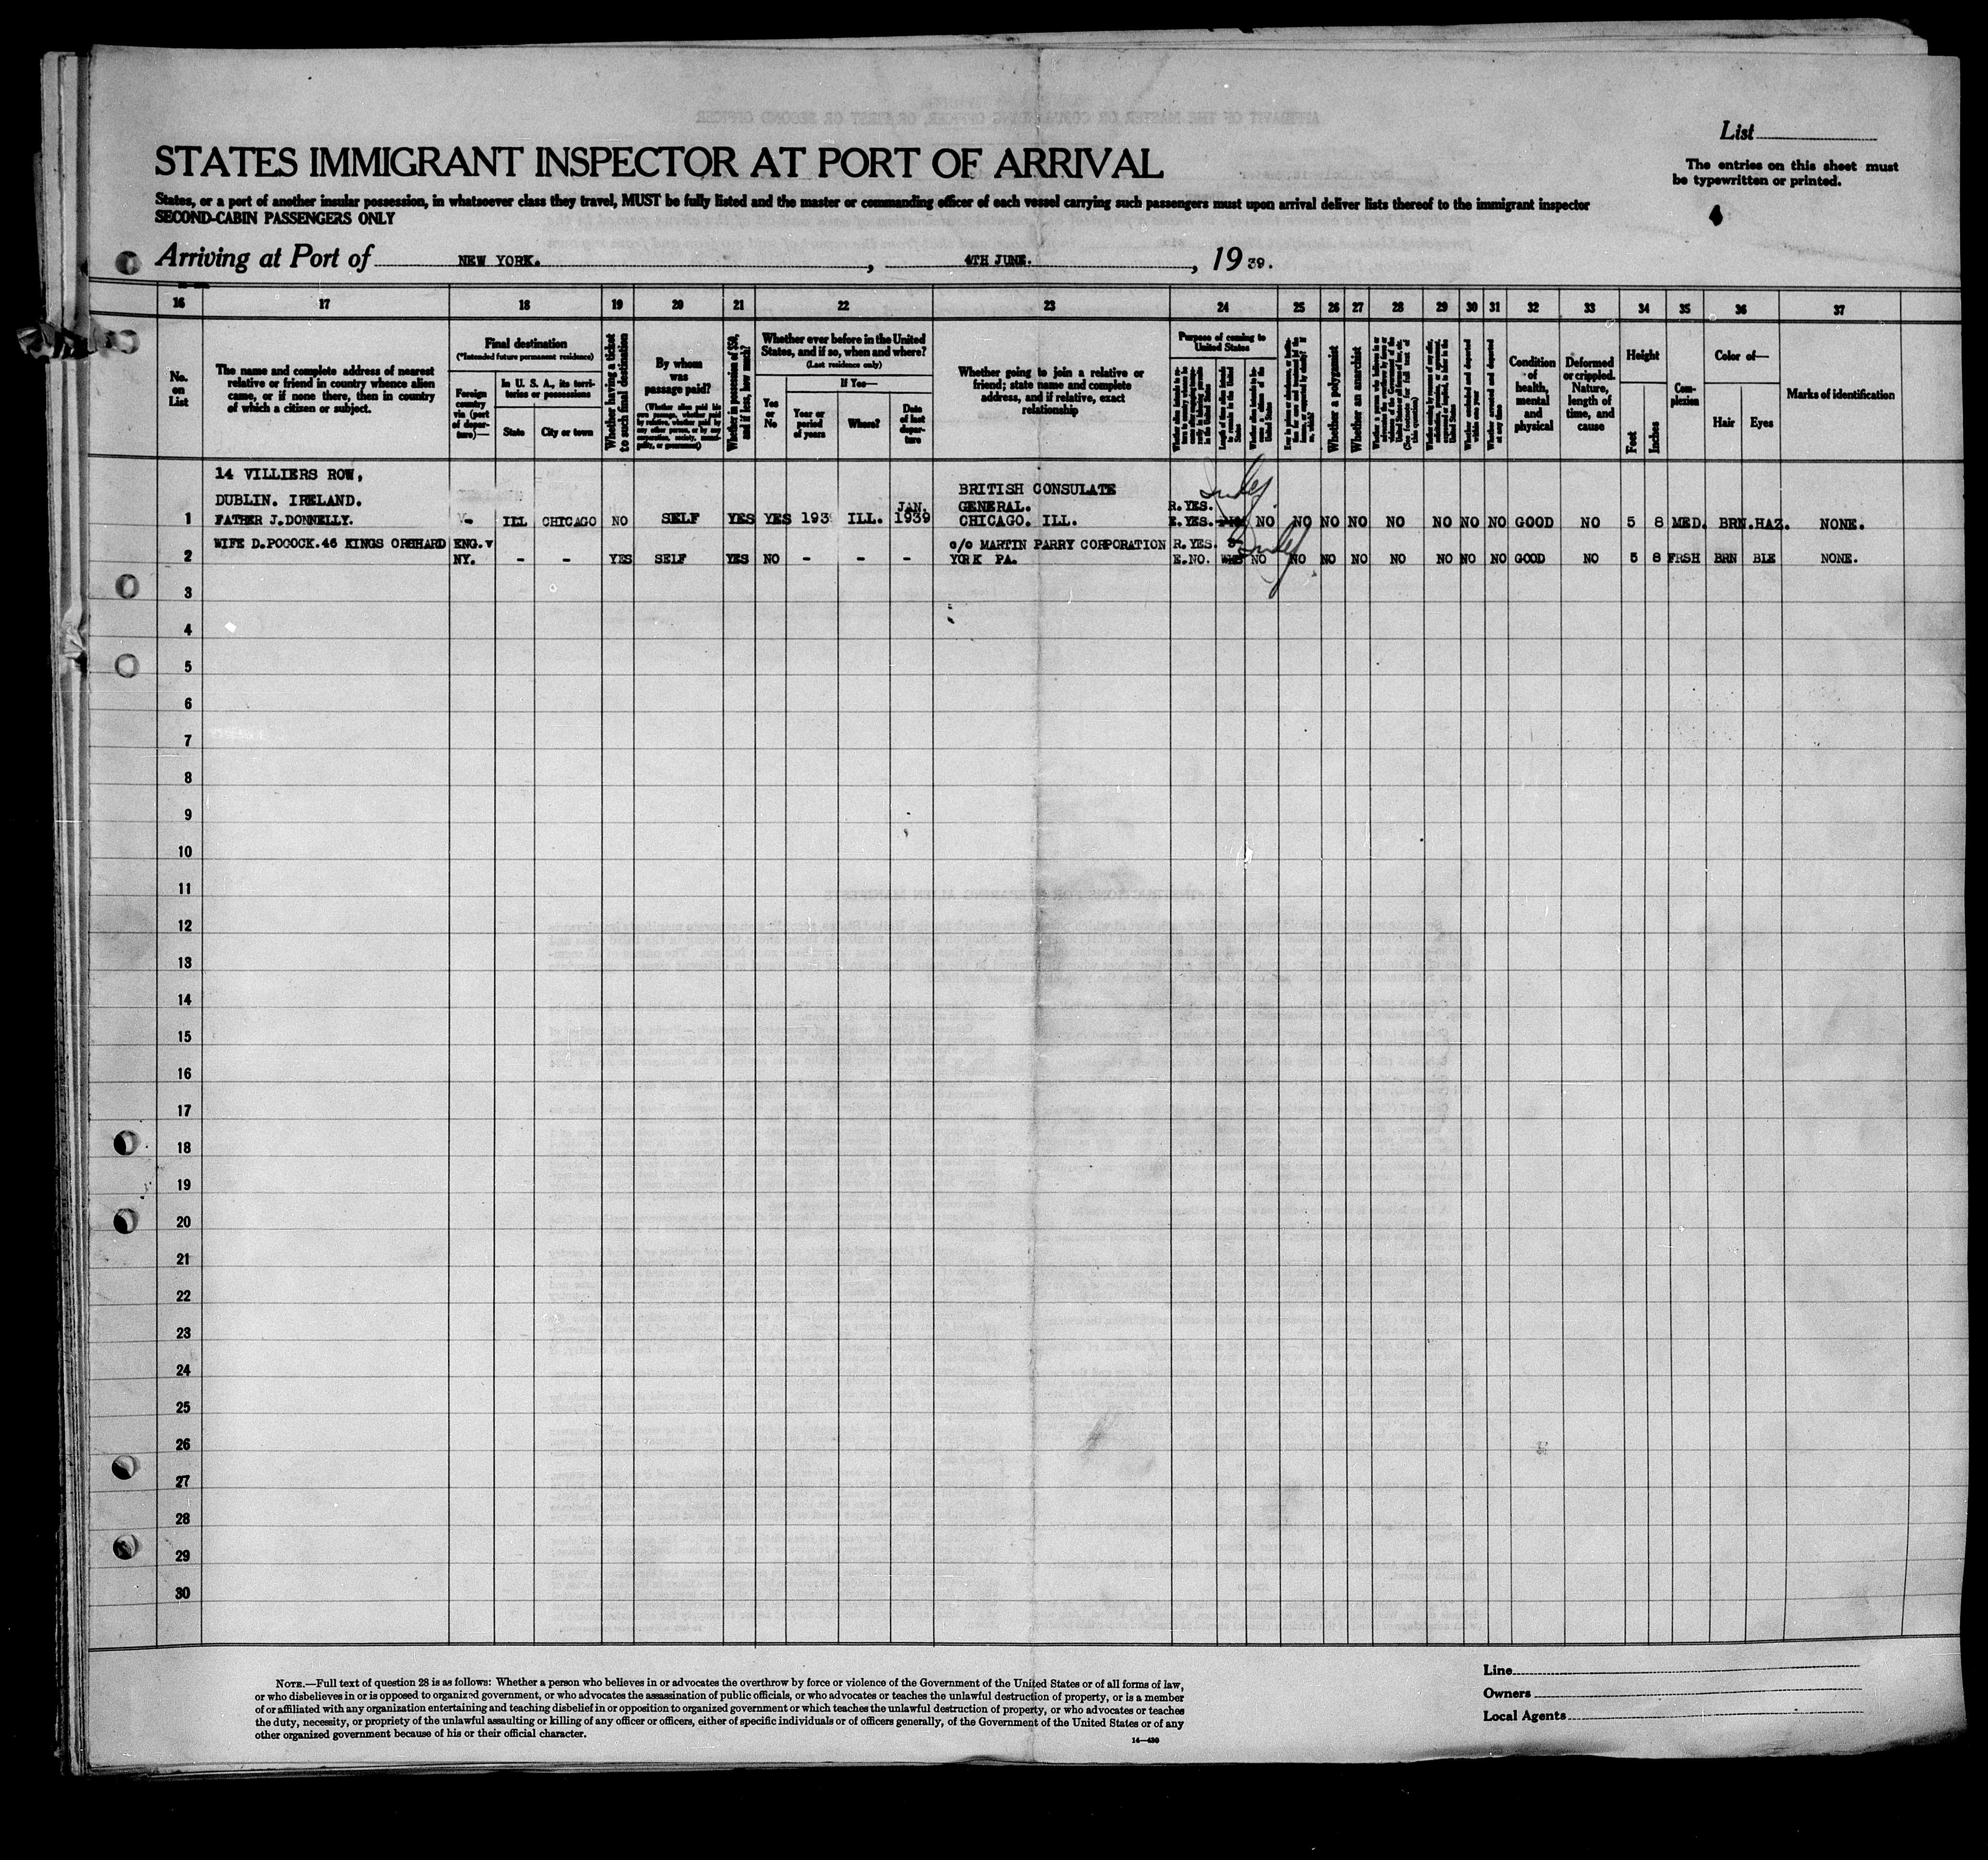 List
STATES IMMIGRANT INSPECTOR AT PORT OF ARRIVAL
The entries on this sheet must
be typewritten or printed.
States, or a port of another insular possession, in whatsoever class they travel, MUST be fully listed and the master or commanding officer of each vessel carrying such passengers must upon arrival deliver lists thereof to the immigrant inspector
SECOND-CABIN PASSENGERS ONLY
Arriving at Port of NEW YORK. , 4TH JUNE. , 19 39.
16 17 18 19 20 21 22 23 24 25 26 27 28 29 30 31 32 33 34 35 36 37
No. on List
The name and complete address of nearest
relative or friend in country whence alien
came, or if none there, then in country
of which a citizen or subject.
Final destination
(*Intended future permanent residence)
Foreign country via (port of departure)—
In U. S. A., its territories or possessions
State
City or town
Whether having a ticket to such final destination
By whom was passage paid?
Whether in possession of $50, and if less, how much?
Whether ever before in the United
States, and if so, when and where?
(Last residence only)
Yes or No
If Yes—
Year or period of years
Where?
Date of last departure
Whether going to join a relative or
friend; state name and complete
address, and if relative, exact
relationship
Purpose of coming to
United States
Whether a polygamist
Whether an anarchist
Condition of health, mental and physical
Deformed or crippled. Nature, length of time, and cause
Height
Feet
Inches
Complexion
Color of—
Hair
Eyes
Marks of identification
14 VILLIERS ROW,
DUBLIN. IRELAND.
BRITISH CONSULATE
GENERAL.
JAN.
R.YES.
1 FATHER J.DONNELLY. ILL CHICAGO NO SELF YES YES 193 ILL. 1939 CHICAGO. ILL. E.YES. NO NO NO NO NO NO NO NO GOOD NO 5 8 MED. BRN. HAZ. NONE.
WIFE D.POCOCK.46 KINGS ORCHARD ENG. v c/o MARTIN PARRY CORPORATION R.YES.
2 NY. - - YES SELF YES NO - - - YORK PA. E.NO. NO NO NO NO NO NO NO NO GOOD NO 5 8 FRSH BRN BLE NONE.
3
4
5
6
7
8
9
10
11
12
13
14
15
16
17
18
19
20
21
22
23
24
25
26
27
28
29
30
NOTE.—Full text of question 28 is as follows: Whether a person who believes in or advocates the overthrow by force or violence of the Government of the United States or of all forms of law,
or who disbelieves in or is opposed to organized government, or who advocates the assassination of public officials, or who advocates or teaches the unlawful destruction of property, or is a member
of or affiliated with any organization entertaining and teaching disbelief in or opposition to organized government or which teaches the unlawful destruction of property, or who advocates or teaches
the duty, necessity, or propriety of the unlawful assaulting or killing of any officer or officers, either of specific individuals or of officers generally, of the Government of the United States or of any
other organized government because of his or their official character.
14—430
Line
Owners
Local Agents